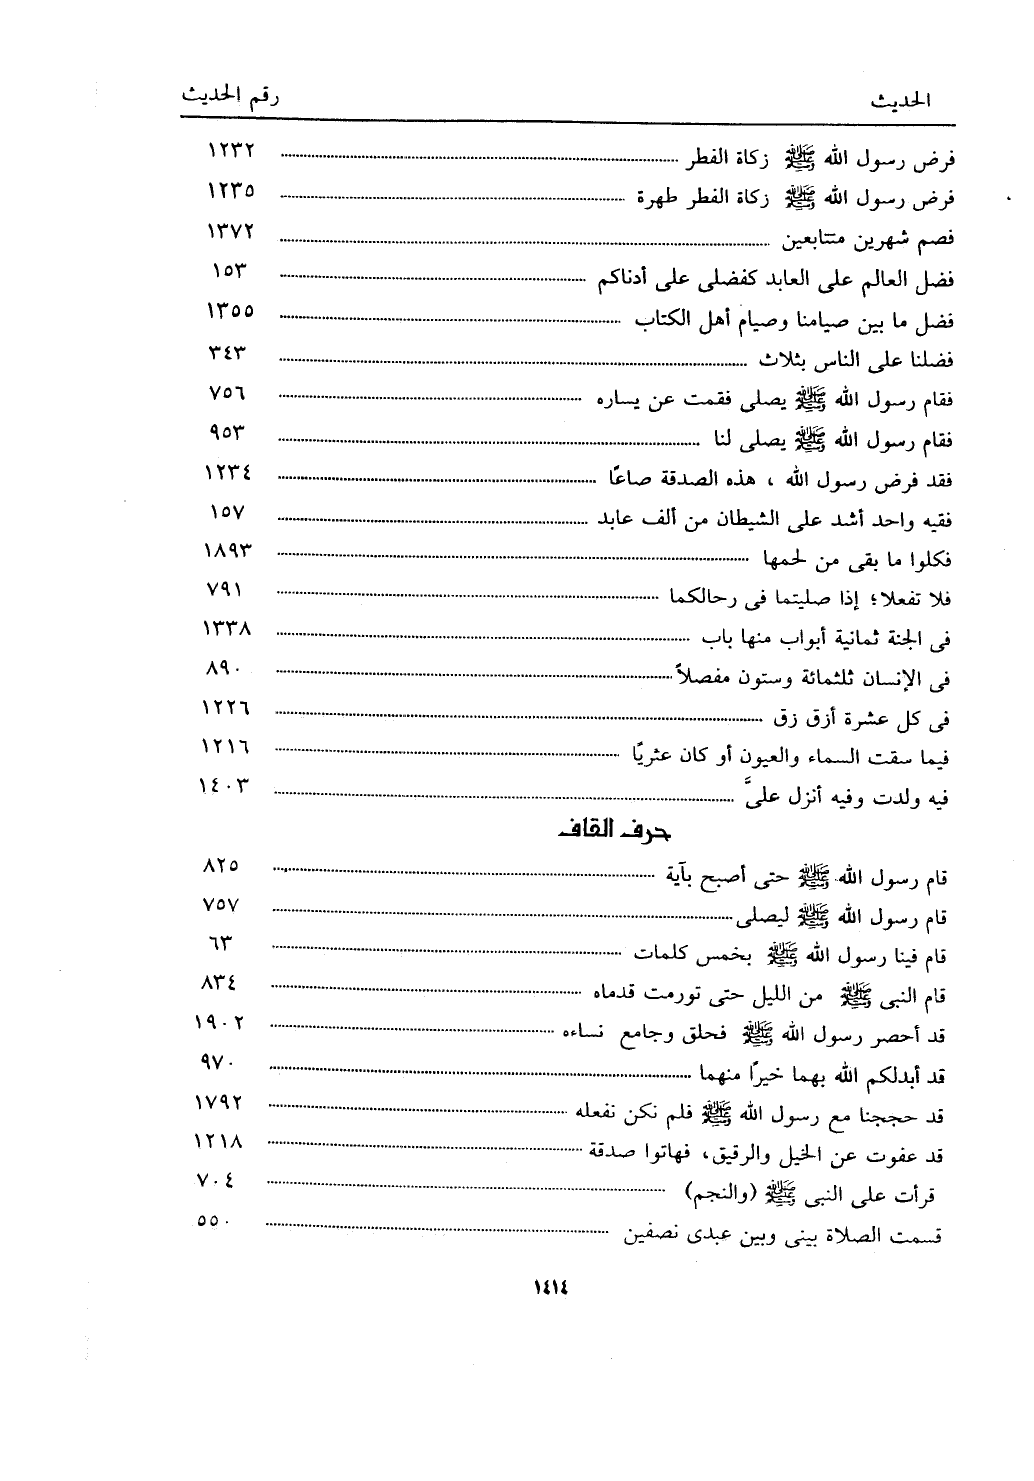 الحديث رقم الحديث
فرض رسول الله ﷺ زكاة الفطر ١٢٣٢
فرض رسول الله ﷺ زكاة الفطر طهرة ١٢٣٥
فصم شهرين متتابعين ١٣٧٢
فضل العالم على العابد كفضلى على أدناكم ١٥٣
فضل ما بين صيامنا وصيام أهل الكتاب ١٣٥٥
فضلنا على الناس بثلاث ٣٤٣
فقام رسول الله ﷺ يصلى فقمت عن يساره ٧٥٦
فقام رسول الله ﷺ يصلى لنا ٩٥٣
فقد فرض رسول الله ، هذه الصدقة صاعًا ١٢٣٤
فقيه واحد أشد على الشيطان من ألف عابد ١٥٧
فكلوا ما بقى من لحمها ١٨٩٣
فلا تفعلا؛ إذا صليتما فى رحالكما ٧٩١
فى الجنة ثمانية أبواب منها باب ١٣٣٨
فى الإنسان ثلثمائة وستون مفصلاً ٨٩٠
فى كل عشرة أزق زق ١٢٢٦
فيما سقت السماء والعيون أو كان عثريًا ١٢١٦
فيه ولدت وفيه أنزل علىَّ ١٤٠٣
حرف القاف
قام رسول الله ﷺ حتى أصبح بآية ٨٢٥
قام رسول الله ﷺ ليصلى ٧٥٧
قام فينا رسول الله ﷺ بخمس كلمات ٦٣
قام النبى ﷺ من الليل حتى تورمت قدماه ٨٣٤
قد أحصر رسول الله ﷺ فحلق وجامع نساءه ١٩٠٢
قد أبدلكم الله بهما خيرًا منهما ٩٧٠
قد حججنا مع رسول الله ﷺ فلم نكن نفعله ١٧٩٢
قد عفوت عن الخيل والرقيق، فهاتوا صدقة ١٢١٨
قرأت على النبى ﷺ (والنجم) ٧٠٤
قسمت الصلاة بينى وبين عبدى نصفين ٥٥٠
١٤١٤